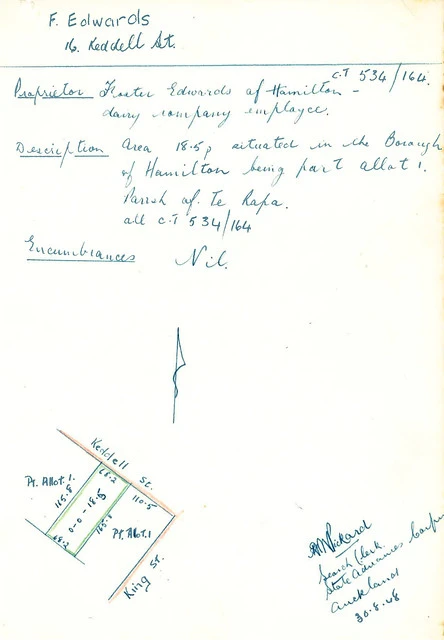 F. Edwards
16. Keddell St.
C.T 534/164.
Proprietor Foster Edwards of Hamilton -
dairy company employee.
Description Area 18.5p situated in the Borough
of Hamilton being part allot 1.
Parish of Te Rapa.
all C.T 534/164
Encumbrances Nil.
Keddell St.
Pt. Allot. 1.
68.2
165.8
0-0-18.5
165.8
110.5
Pt. Allot. 1
68.2
King St.
Pickard
Search Clerk
State Advances Corpn
Auckland
30.8.48